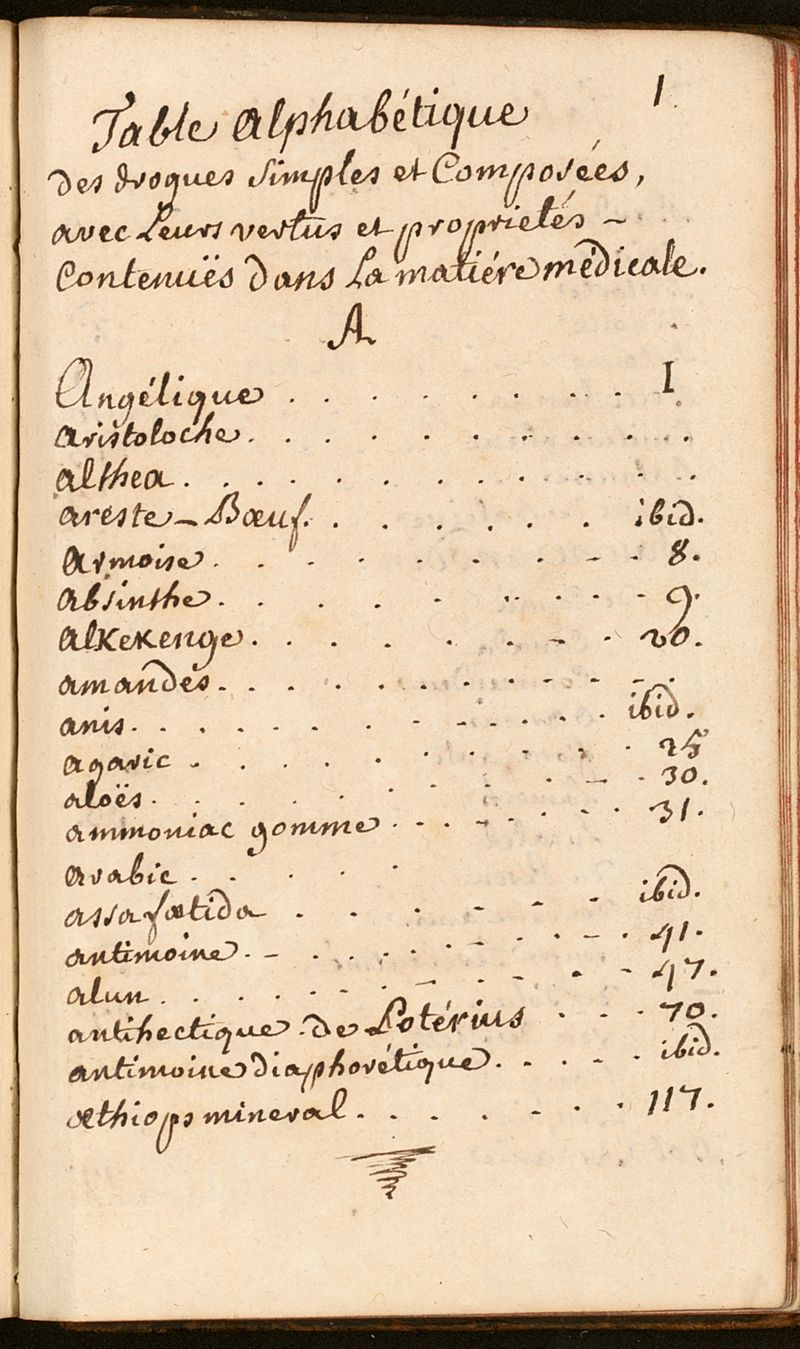 1.
Table alphabétique
des drogues simples et Composées,
avec Leurs vertus et proprietés –
Contenuës dans La matiére médicale.
A
Angélique . . . . . . . . I
aristoloche . . . . . . . . .
althea . . . . . . . . . . .
areste – Bœuf . . . . . . . ibid.
armoise . . . . . . . . . 8.
absinthe . . . . . . . . . 9.
alkekenge . . . . . . . – . 20.
amandes . . . . . . . . . . .
anis . . . . . . . . . . . ibid.
agaric . . . . . . . . . 25
aloës . . . . . . . . – . 30.
ammoniac gomme . . . . . . . 31.
arabic . . . . .
assa fœtida . . . . – . ibid.
antimoine . – . . . . . . – . 41.
alun . . . . . . . . . – 47.
antihectique de Potérius . . . 70.
antimoine diaphorétique . . . . . ibid.
æthiops mineral . . . . . . . 117.